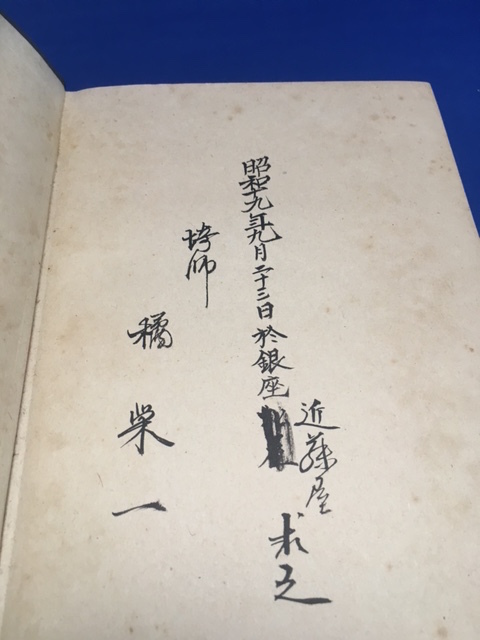 昭和十九年九月二十三日於銀座近藤屋求之
師
橘 栄 一